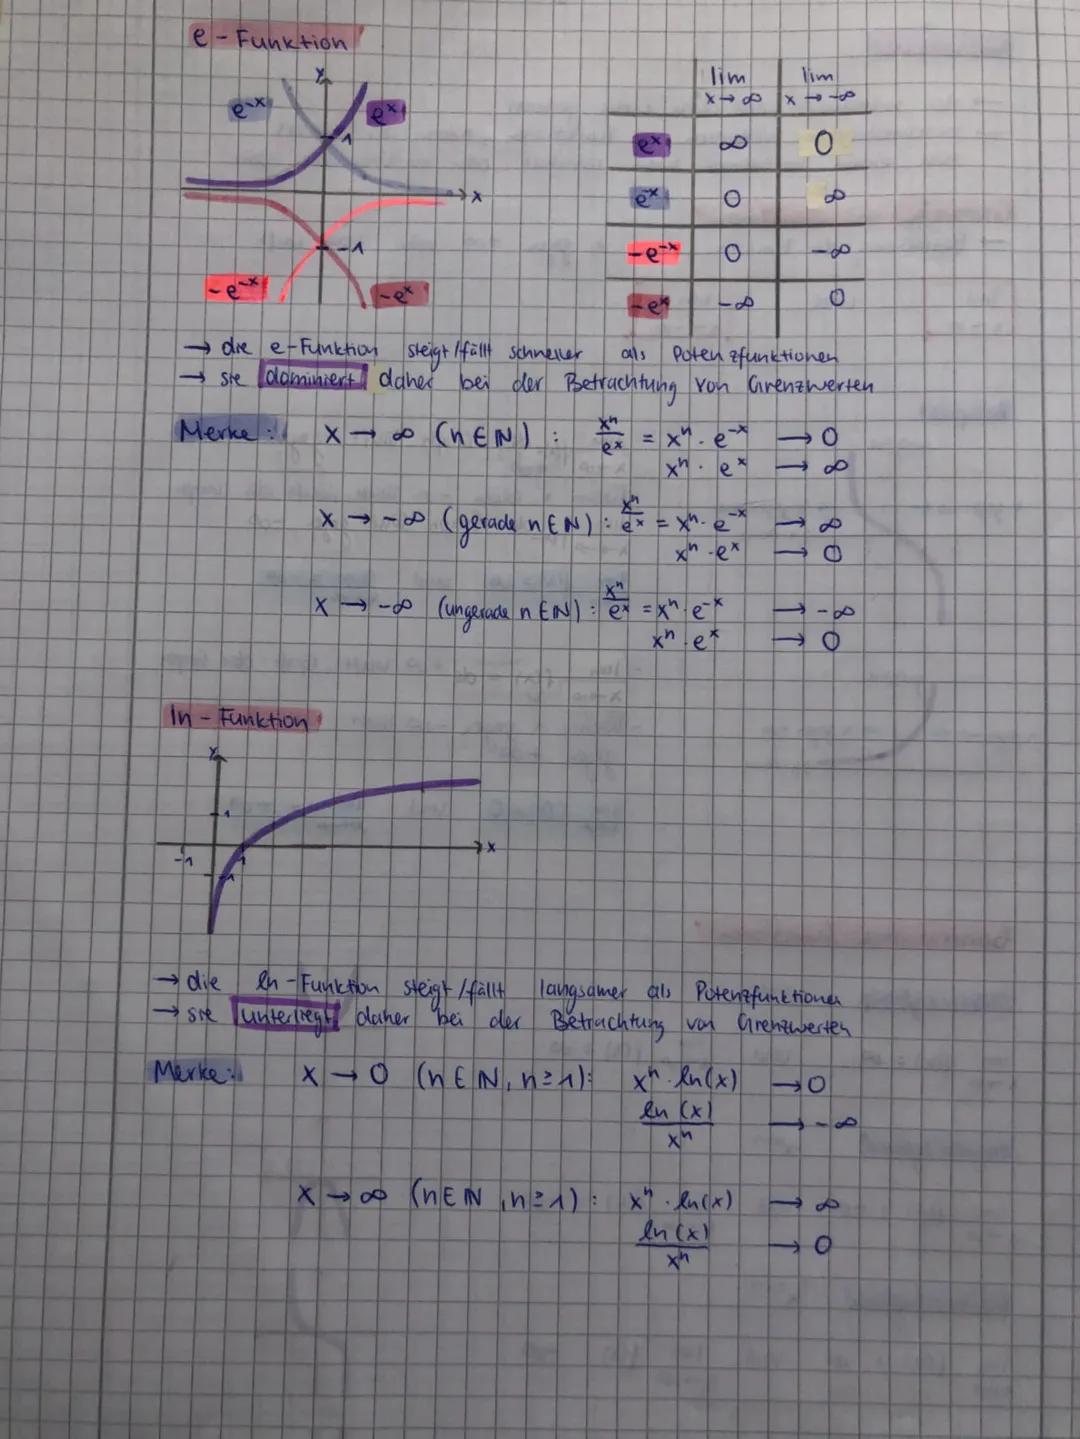 e - Funktion
y
e⁻ˣ
eˣ
1
x
-1
-e⁻ˣ
-eˣ
lim x→∞ lim x→-∞
eˣ ∞ 0
e⁻ˣ 0 ∞
-e⁻ˣ 0 -∞
-eˣ -∞ 0
→ die e-Funktion steigt/fällt schneller als Potenzfunktionen
→ sie dominiert daher bei der Betrachtung von Grenzwerten
Merke: x → ∞ (n ∈ ℕ) : xⁿ/eˣ = xⁿ · e⁻ˣ → 0
xⁿ · eˣ → ∞
x → -∞ (gerade n ∈ ℕ) : xⁿ/eˣ = xⁿ · e⁻ˣ → ∞
xⁿ · eˣ → 0
x → -∞ (ungerade n ∈ ℕ) : xⁿ/eˣ = xⁿ · e⁻ˣ → -∞
xⁿ · eˣ → 0
ln - Funktion
y
1
x
-1 1
-1
→ die ln-Funktion steigt/fällt langsamer als Potenzfunktionen
→ sie unterliegt daher bei der Betrachtung von Grenzwerten
Merke: x → 0 (n ∈ ℕ, n ≥ 1): xⁿ · ln(x) → 0
ln(x)/xⁿ → -∞
x → ∞ (n ∈ ℕ, n ≥ 1) : xⁿ · ln(x) → ∞
ln(x)/xⁿ → 0